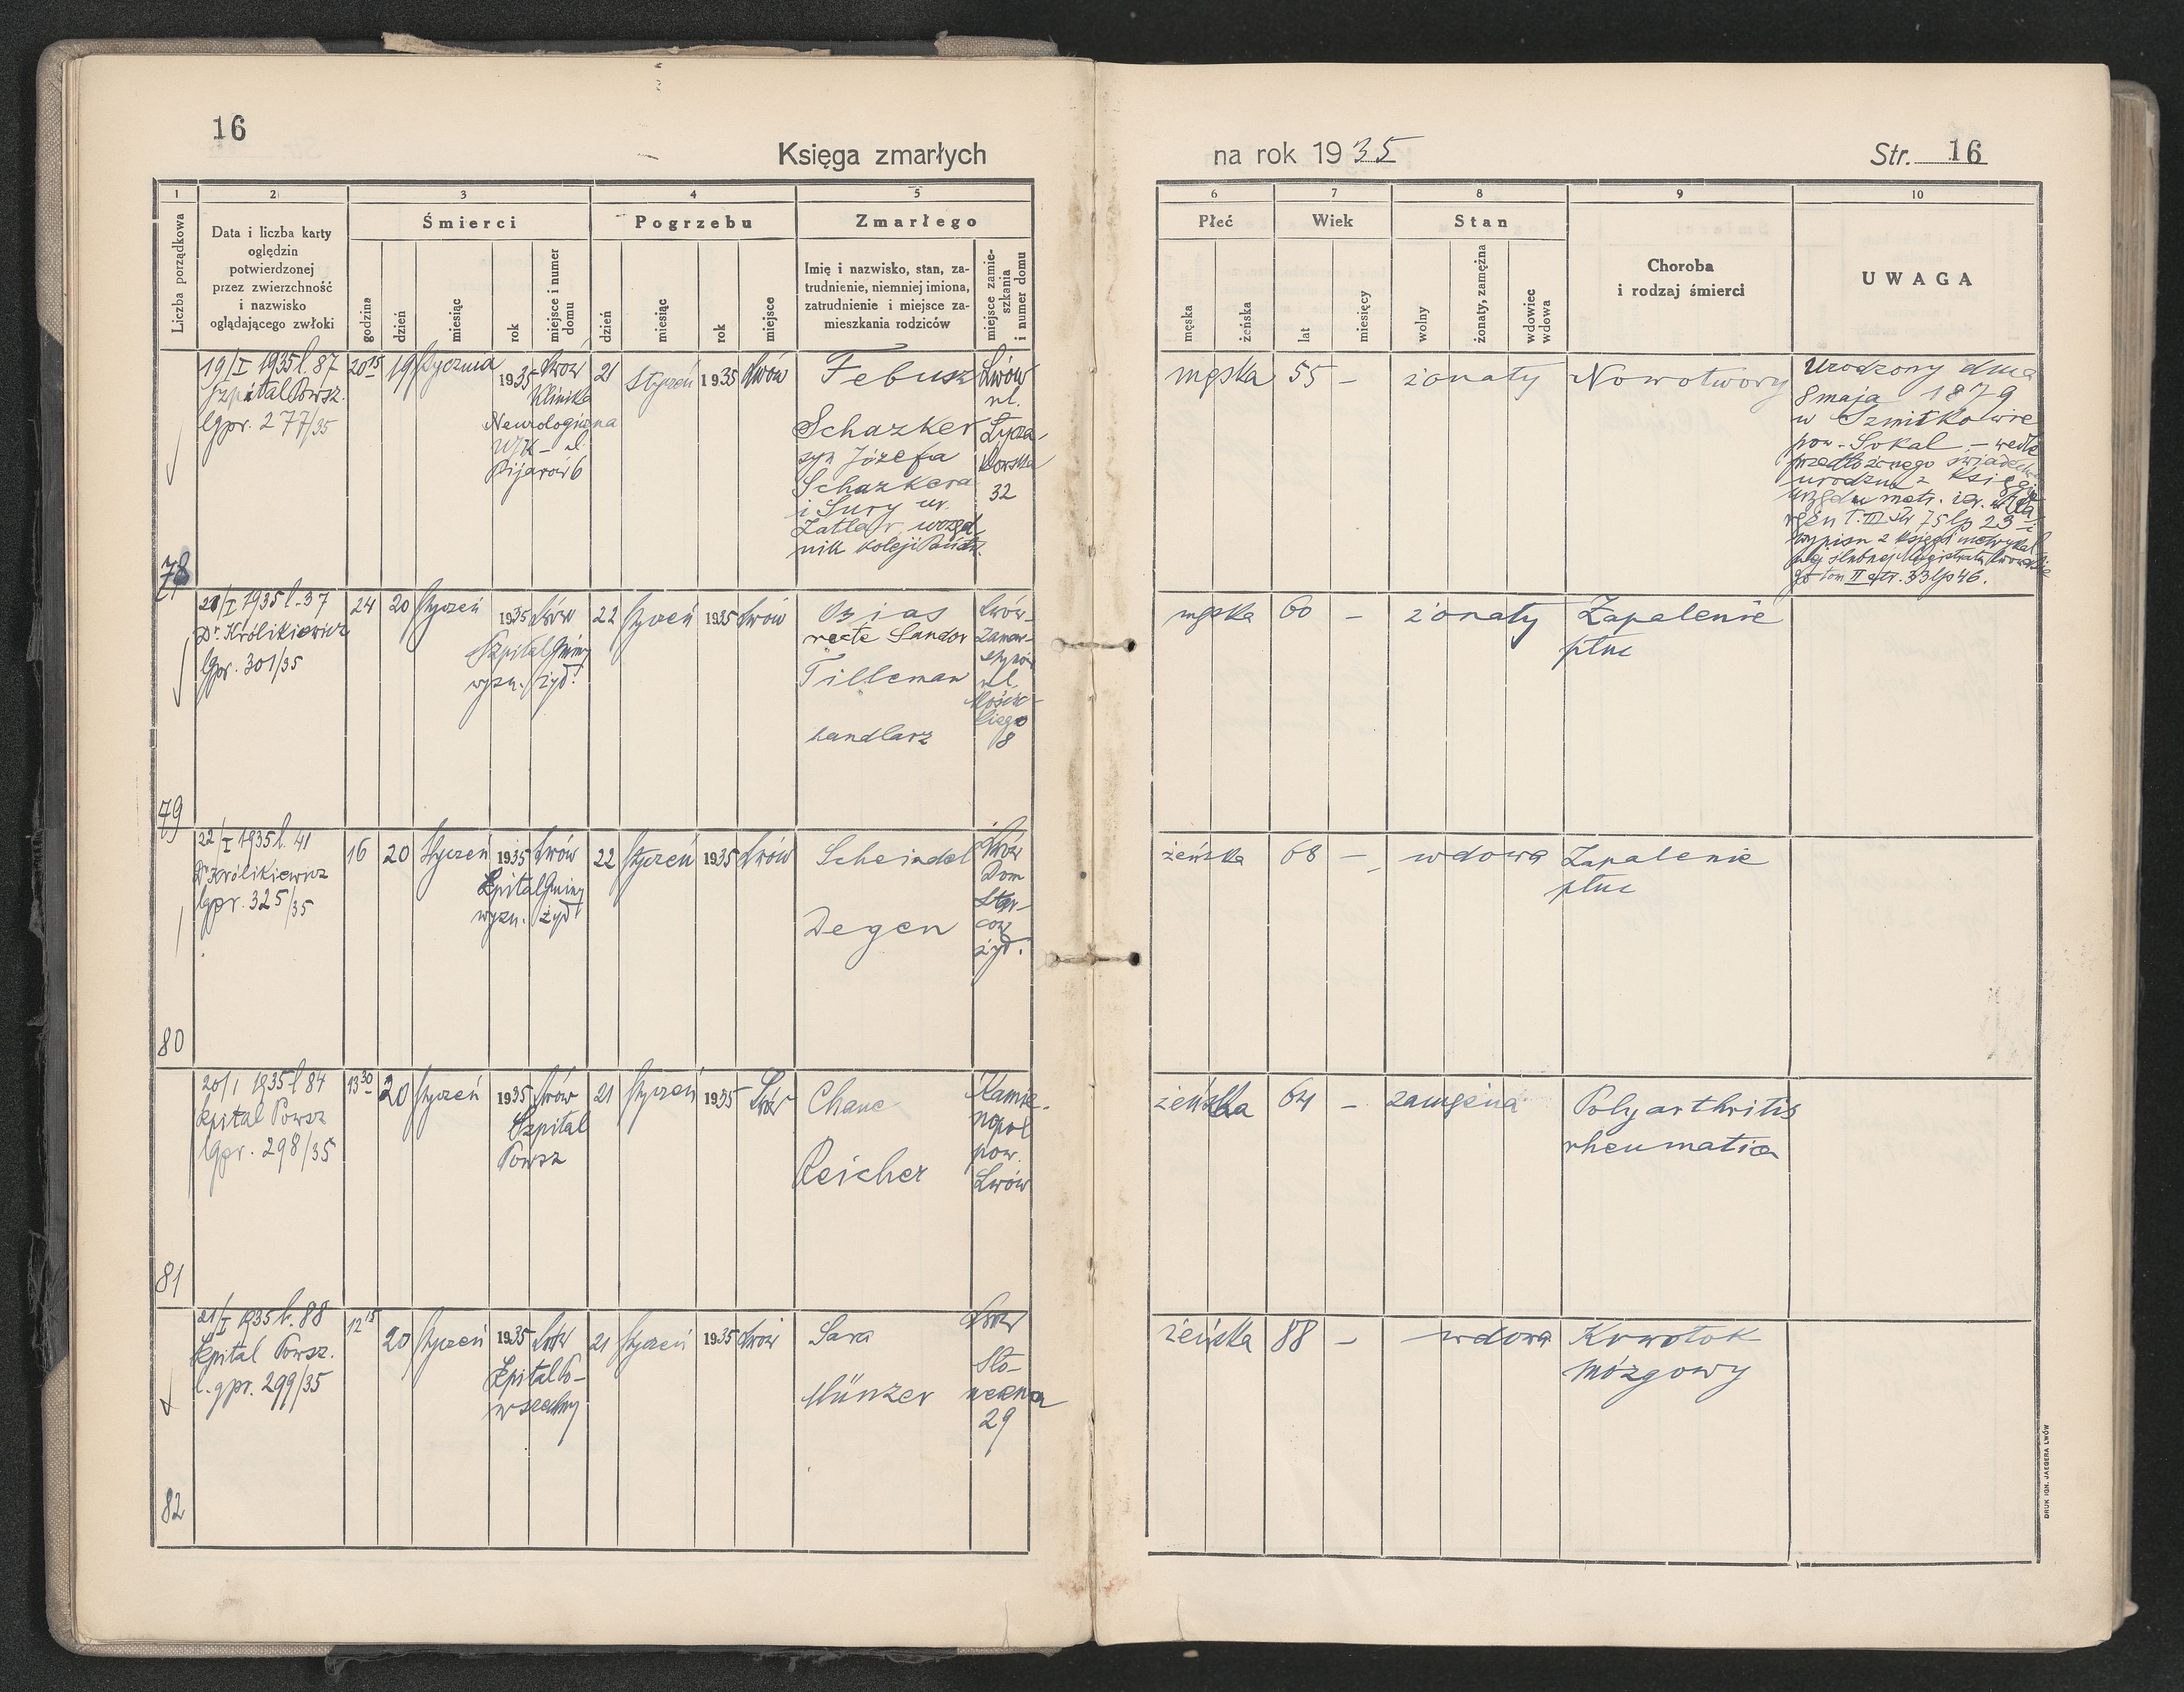 16
Księga zmarłych
na rok 1935
Str. 16
1
2
3
4
5
6
7
8
9
10
Liczba porządkowa
Data i liczba karty
oględzin
potwierdzonej
przez zwierzchność
i nazwisko
oglądającego zwłoki
Śmierci
godzina
dzień
miesiąc
rok
miejsce i numer
domu
Pogrzebu
dzień
miesiąc
rok
miejsce
Zmarłego
Imię i nazwisko, stan, za-
trudnienie, niemniej imiona,
zatrudnienie i miejsce za-
mieszkania rodziców
miejsce zamie-
szkania
i numer domu
Płeć
męska
żeńska
Wiek
lat
miesięcy
Stan
wolny
żonaty, zamężna
wdowiec
wdowa
Choroba
i rodzaj śmierci
UWAGA
78
19/I 1935 l. 87
Szpital Powsz.
lgpr. 277/35
20 15
19
stycznia
1935
Lwów
Klinika
Neurologiczna
UJK - ul.
Pijarów 6
21
styczeń
1935
Lwów
Febusz
Schazker
syn Józefa
Schazkera
i Sury ur.
Zatlar, urzęd
nik koleji Państw.
Lwów
ul.
Łycza-
kowska
32
męska
55
-
żonaty
Nowotwory
Urodzony dnia
8 maja 1879
w Szmitkowie
pow. Sokal - wedle
przedłożonego świadectwa
urodzin z księgi
urzędu metr. izr. w
t. III str 75 lp 23 i
wypisu z księgi
ślubnej Magistratu
tom II str. 33 lp 46.
79
21/I 1935 l. 37
Dr. Królikiewicz
lgpr. 301/35
24
20
styczeń
1935
Lwów
Szpital Gminy
wyzn. żyd.
22
styczeń
1935
Lwów
Ozias
recte Sandor
Tilleman
handlarz
Lwów-
Zamar-
stynów
ul.
Kościc-
kiego
8
męska
60
-
żonaty
Zapalenie
płuc
80
22/I 1935 l. 41
Dr Królikiewicz
lgpr. 325/35
16
20
styczeń
1935
Lwów
Szpital Gminy
wyzn. żyd
22
styczeń
1935
Lwów
Scheindel
Degen
Lwów
Dom
Star-
ców
żyd.
żeńska
68
-
wdowa
Zapalenie
płuc
81
20/I 1935 l 84
Szpital Powsz
lgpr. 298/35
13 30
20
styczeń
1935
Lwów
Szpital
Powsz
21
styczeń
1935
Lwów
Chane
Reicher
Kamie-
nopol
pow.
Lwów
żeńska
64
-
zamężna
Polyarthritis
rheumatica
82
21/I 1935 l. 88
Szpital Powsz.
l. gpr. 299/35
12 15
20
styczeń
1935
Lwów
Szpital Po-
wszechny
21
styczeń
1935
Lwów
Sara
Münzer
Lwów
Sło-
neczna
29
żeńska
88
-
wdowa
Krwotok
mózgowy
DRUK IGN. JAEGERA LWÓW